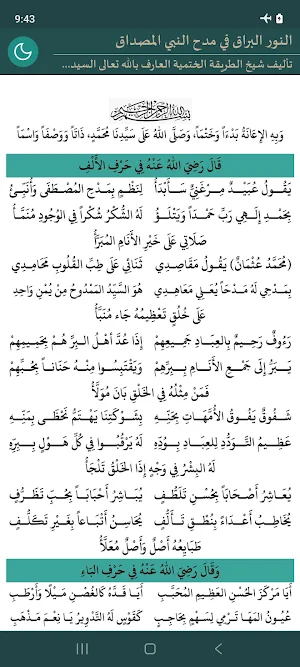 9:43
النور البراق في مدح النبي المصداق
تأليف شيخ الطريقة الختمية العارف بالله تعالى السيد...
بسم الله الرحمن الرحيم
وَبِهِ الإِعَانَةُ بَدْءَاً وَخَتْمَاً، وَصَلَّى اللهُ عَلَى سَيِّدِنَا مُحَمَّدٍ، ذَاتَاً وَوَصْفَاً وَاسْمَاً
قَالَ رَضِيَ اللهُ عَنْهُ فِي حَرْفِ الأَلِفِ
يَقُولُ عُبَيْدٌ مِرْغَنِيٌّ سَأَبْدَأُ لِنَظْمٍ بِمَدْحِ المُصْطَفَى وَأُنَبِّئُ
بِحَمْدِ إِلَهِي رَبِّ حَمْدَاً وَيَتْلُوُ لَهُ الشُّكْرُ شُكْرَاً فِي الوُجُودِ مُنَشَّأُ
صَلَاتِي عَلَى خَيْرِ الأَنَامِ المُبَرَّأُ
(مُحَمَّدُ عُثْمَانٌ) يَقُولُ مَقَاصِدِي ثَنَائِي عَلَى طِبِّ القُلُوبِ مَحَامِدِي
بِمَدْحِي لَهُ مَدْحَاً يُعَلِّي مَعَاهِدِي هُوَ السَّيِّدُ المَمْدُوحُ مِنْ يُمْنِ وَاحِدِ
عَلَى خُلُقٍ تَعْظِيمُهُ جَاءَ مُنَبَّأُ
رَءُوفٌ رَحِيمٌ بِالعِبَادِ جَمِيعِهِمْ إِذَا عُدَّ أَهْلُ البِرِّ هُمْ بِحَمِيمِهِمْ
يَبَرُّ إِلَى جَمْعِ الأَنَامِ بِبِرِّهِمْ وَيَقْتَبِسُوا مِنْهُ حَنَانَاً بِحُبِّهِمْ
فَمَنْ مِثْلُهُ فِي الخَلْقِ بَانَ مُوَلَّأُ
شَفُوقٌ يَفُوقُ الأُمَّهَاتِ بِحَنِّهِ بِشَوْكَتِنَا يَهْتَمُّ نَحْظَى بِمَنِّهِ
عَظِيمُ التَّوَدُّدِ لِلعِبَادِ بِوُدِّهِ لَهُ يَرْقُبُوا فِي كُلِّ هَوْلٍ بِبِرِّهِ
لَهُ البِشْرُ فِي وَجْهٍ إِذَا الخَلْقُ تَلْجَأُ
يُعَاشِرُ أَصْحَابَاً بِحُسْنِ تَلَطُّفِ يُبَاشِرُ أَحْبَابَاً بِحُبِّ تَظَرُّفِ
يُخَاطِبُ أَعْدَاءً بِنُطْقِ تَأَلُّفِ يُحَاسِنُ أَتْبَاعَاً بِغَيْرِ تَكَلُّفِ
طَبَايِعُهُ أَصْلٌ وَأَصْلٌ مُعَلَّأُ
وَقَالَ رَضِيَ اللهُ عَنْهُ فِي حَرْفِ البَاءِ
أَيَا مَرْكَزَ الحُسْنِ العَظِيمِ المُحَبَّبِ أَيَا قَدَّهُ كَالغُصْنِ مَيْلَاً وَأَرْطَبِ
عُيُونُ المَهَا تَرْمِي لِسَهْمٍ بِحَاجِبٍ كَقَوْسٍ لَهُ التَّدْوِيرُ يَا نِعْمَ مَذْهَبِ